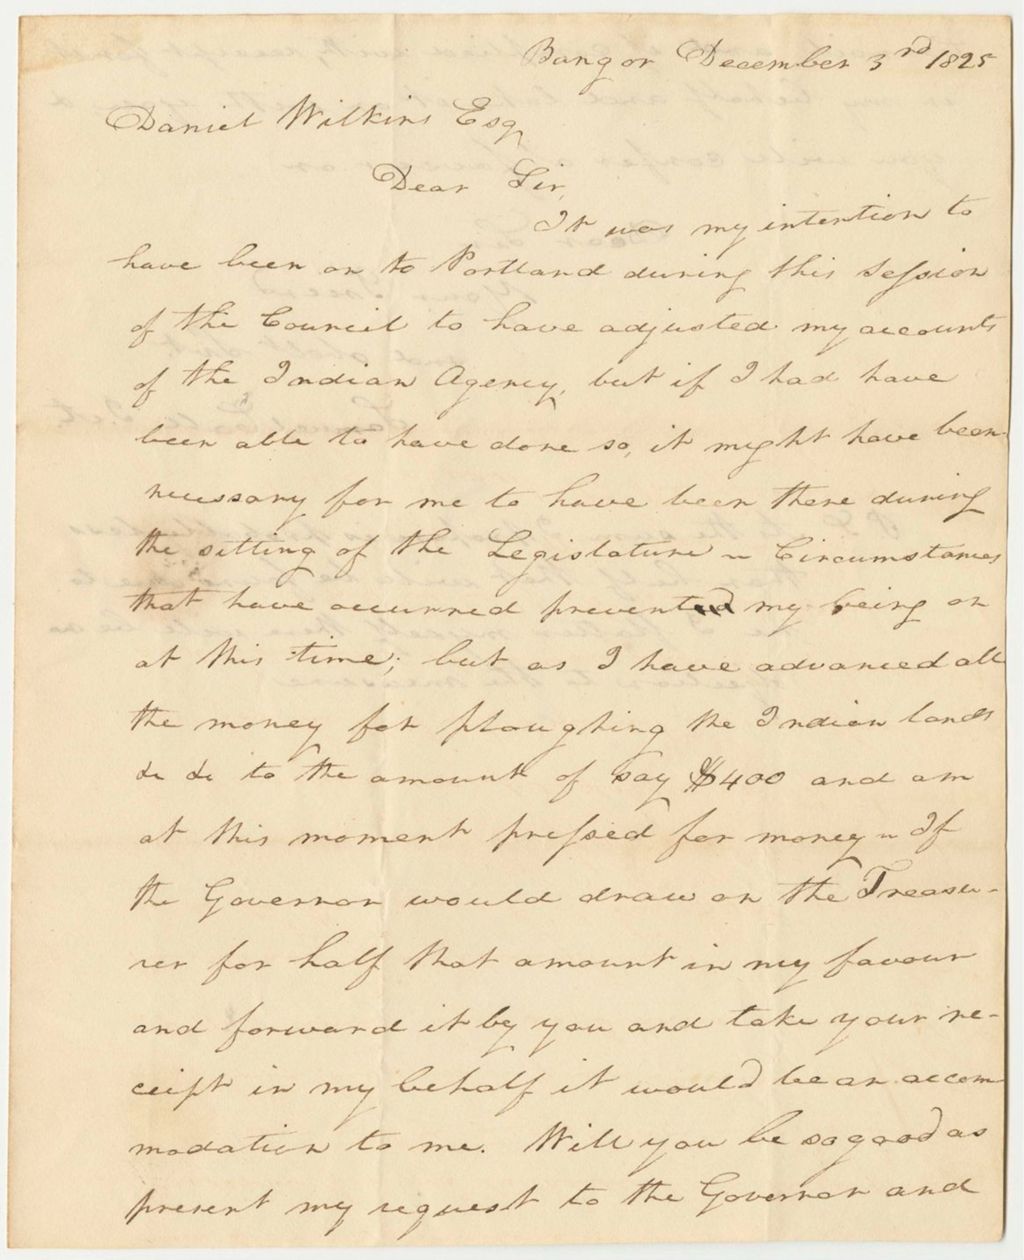 Bangor December 3rd 1825
Daniel Wilkins Esq
Dear Sir,
It was my intention to
have been on to Portland during this Session
of the Council to have adjusted my accounts
of the Indian Agency, but if I had have
been able to have done so, it might have been
necessary for me to have been there during
the sitting of the Legislature ~ Circumstances
that have occurred prevented my being on
at this time; but as I have advanced all
the money for ploughing the Indian lands
&c &c to the amount of say $400 and am
at this moment pressed for money ~ If
the Governor would draw on the Treasu-
rer for half that amount in my favour
and forward it by you and take your re-
ceipt in my behalf it would be an accom
modation to me. Will you be so good as
present my request to the Governor and